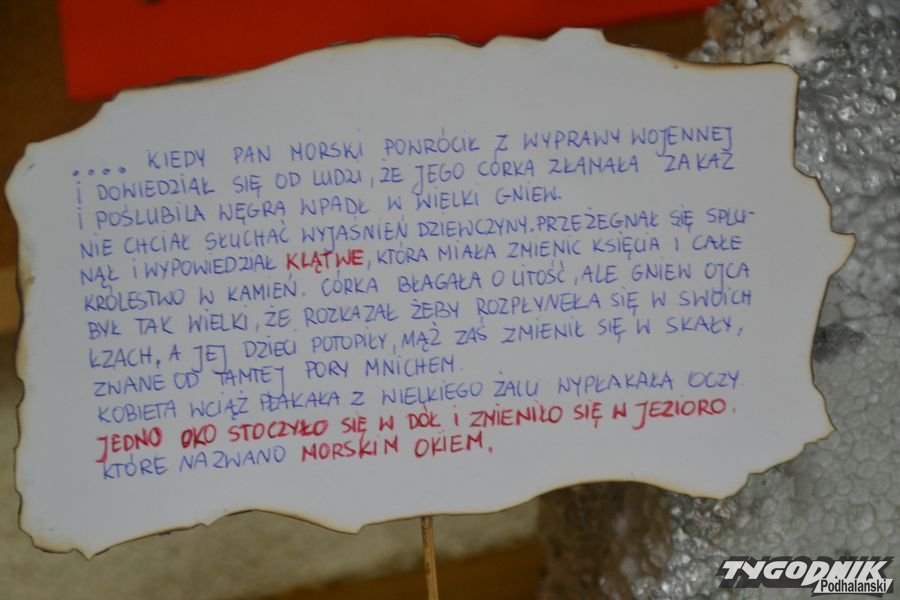 .... KIEDY PAN MORSKI POWRÓCIŁ Z WYPRAWY WOJENNEJ
I DOWIEDZIAŁ SIĘ OD LUDZI, ŻE JEGO CÓRKA ZŁAMAŁA ZAKAZ
I POŚLUBIŁA WĘGRA WPADŁ W WIELKI GNIEW.
NIE CHCIAŁ SŁUCHAĆ WYJAŚNIEŃ DZIEWCZYNY. PRZEŻEGNAŁ SIĘ SPLU-
NĄŁ I WYPOWIEDZIAŁ KLĄTWE, KTÓRA MIAŁA ZMIENIC KSIĘCIA I CAŁE
KRÓLESTWO W KAMIEŃ. CÓRKA BŁAGAŁA O LITOŚĆ, ALE GNIEW OJCA
BYŁ TAK WIELKI, ŻE ROZKAZAŁ ŻEBY ROZPŁYNEŁA SIĘ W SWOICH
ŁZACH, A JEJ DZIECI POTOPIŁY, MĄŻ ZAŚ ZMIENIŁ SIĘ W SKAŁY,
ZWANE OD TAMTEJ PORY MNICHEM.
KOBIETA WCIĄŻ PŁAKAŁA Z WIELKIEGO ŻALU WYPŁAKAŁA OCZY.
JEDNO OKO STOCZYŁO SIĘ W DÓŁ I ZMIENIŁO SIĘ W JEZIORO,
KTÓRE NAZWANO MORSKIM OKIEM.
TYGODNIK
Podhalański